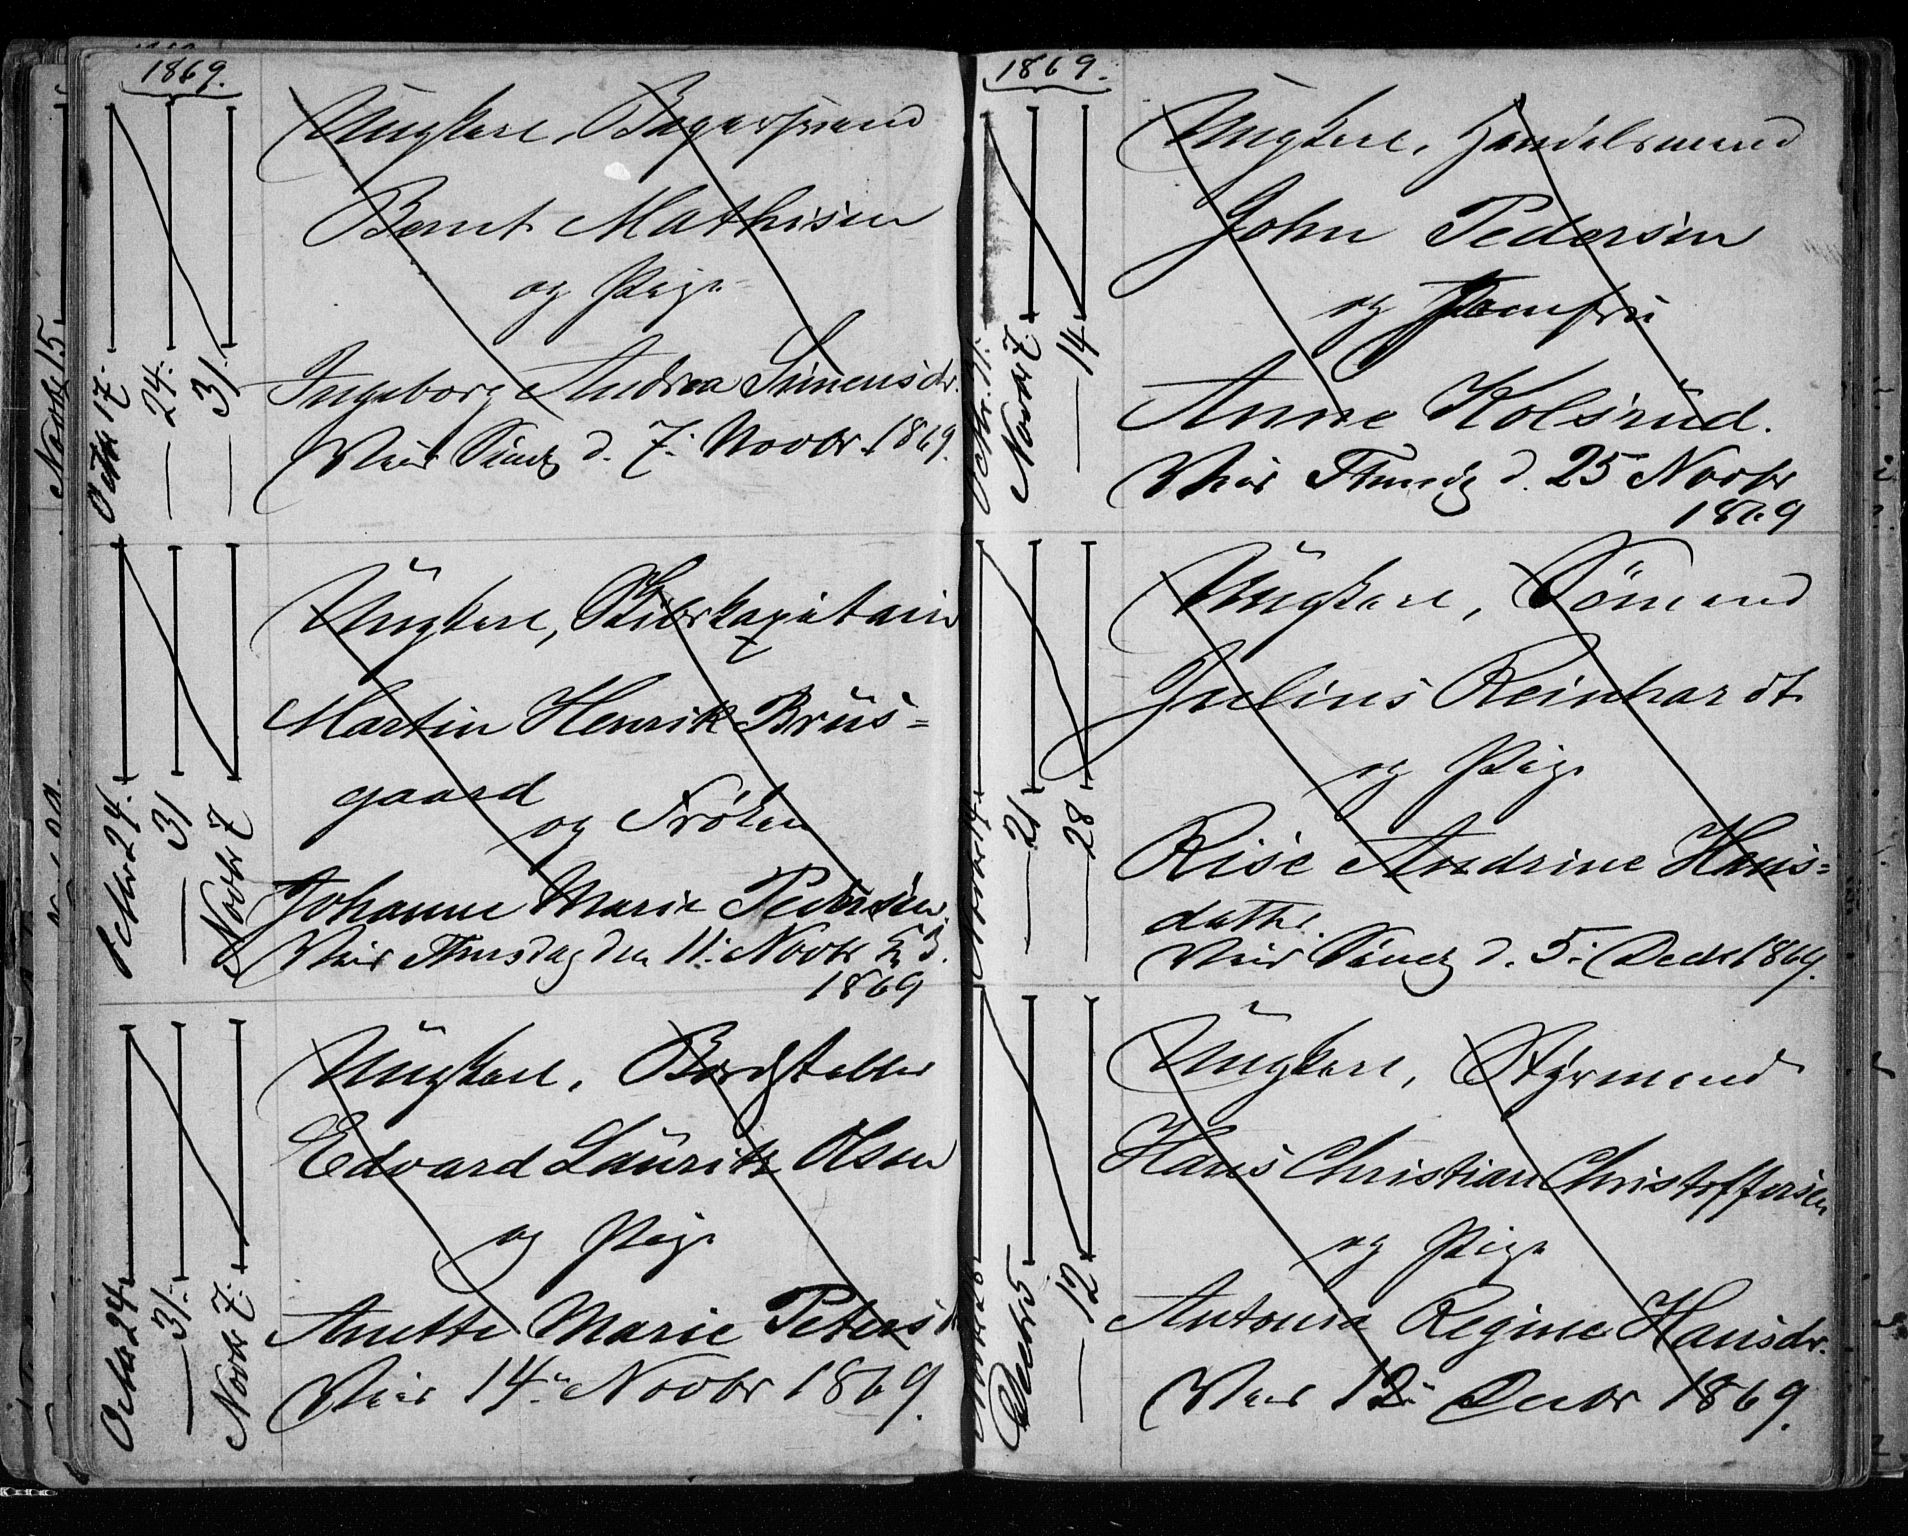 1869.
Octbr 17.
— 24.
— 31.
Ungkarl, Bagersvend
Bernt Mathisen
og Pige
Ingeborg Andrea Simensdr.
Viet Sündg d. 7. Novbr. 1869.
Octbr 24.
— 31
Novbr 7
Ungkarl, Skibskapitain
Martin Henrik Brüs=
gaard
og Frøken
Johanne Marie Pedersen.
Viet Thursdag den 11. Novbr
1869
Octbr 24
— 31.
Novbr 7.
Ungkarl,
Edvard Lauritz Olsen
og Pige
Anette Marie Peters
Viet 14. Novbr 1869.
1869.
Octbr. 31.
Novbr 7.
— 14
Ungkarl, Handelsmand
John Pedersen
og Jomfru
Anne Kolsrud.
Viet d. 25 Novbr
1869
Novbr 14
— 21
— 28
Ungkarl, Sömand
Julius Reinhardt
og Pige
Risc Andrine Hans=
datter.
Viet Sündg d. 5. Decbr 1869.
Novbr 28
Decbr 5
— 12
Ungkarl, Styrmand
Hans Christian Christoffersen
og Pige
Antonia Regine Hansdr.
Viet 12. Decbr 1869.
Novbr 15